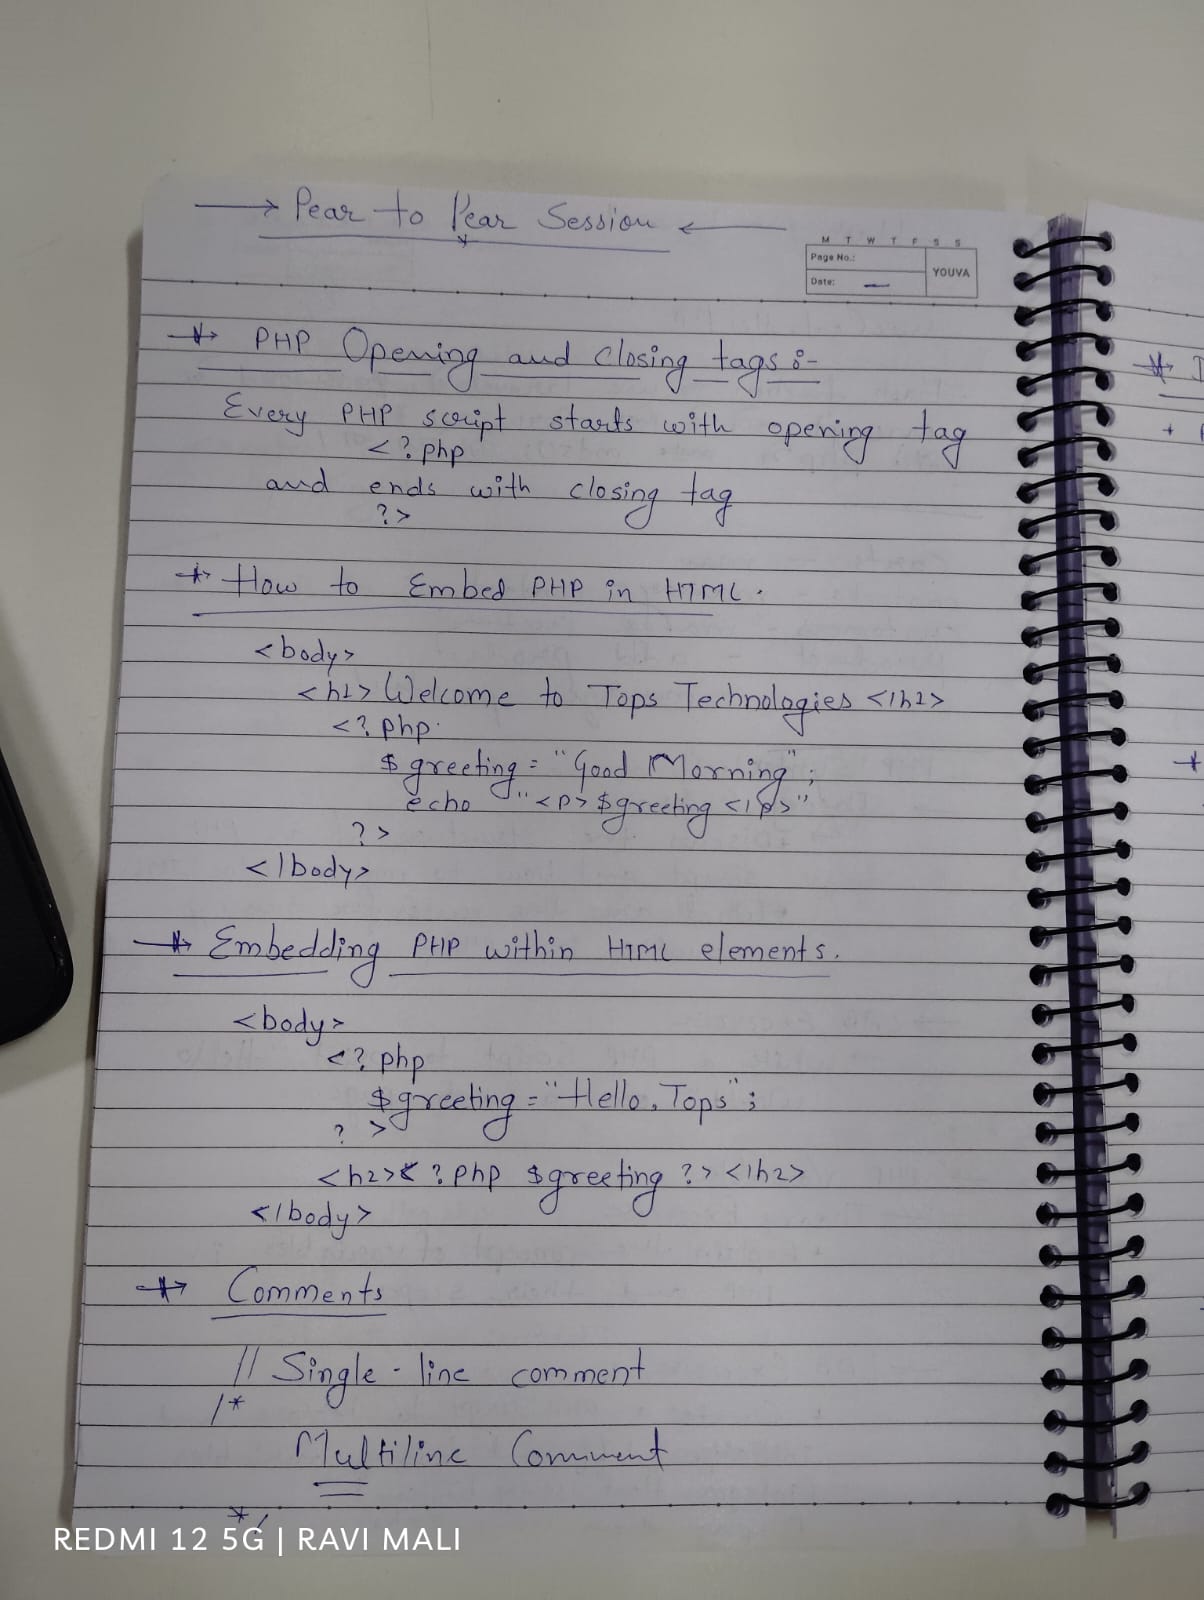 → Pear to Pear Session ←
M T W T F S S
Page No.:
YOUVA
Date:
PHP Opening and closing tags :-
Every PHP script starts with opening tag
<? php
and ends with closing tag
?>
* How to Embed PHP in HTML.
<body>
<h1> Welcome to Tops Technologies </h1>
<? php
$ greeting = "Good Morning";
echo "<p> $greeting </p>"
?>
</body>
* Embedding PHP within HTML elements.
<body>
<? php
$greeting = "Hello, Tops";
? >
<h2> < ? php $greeting ?> </h2>
</body>
* Comments
// Single-line comment
/*
Multiline Comment
*/
REDMI 12 5G | RAVI MALI